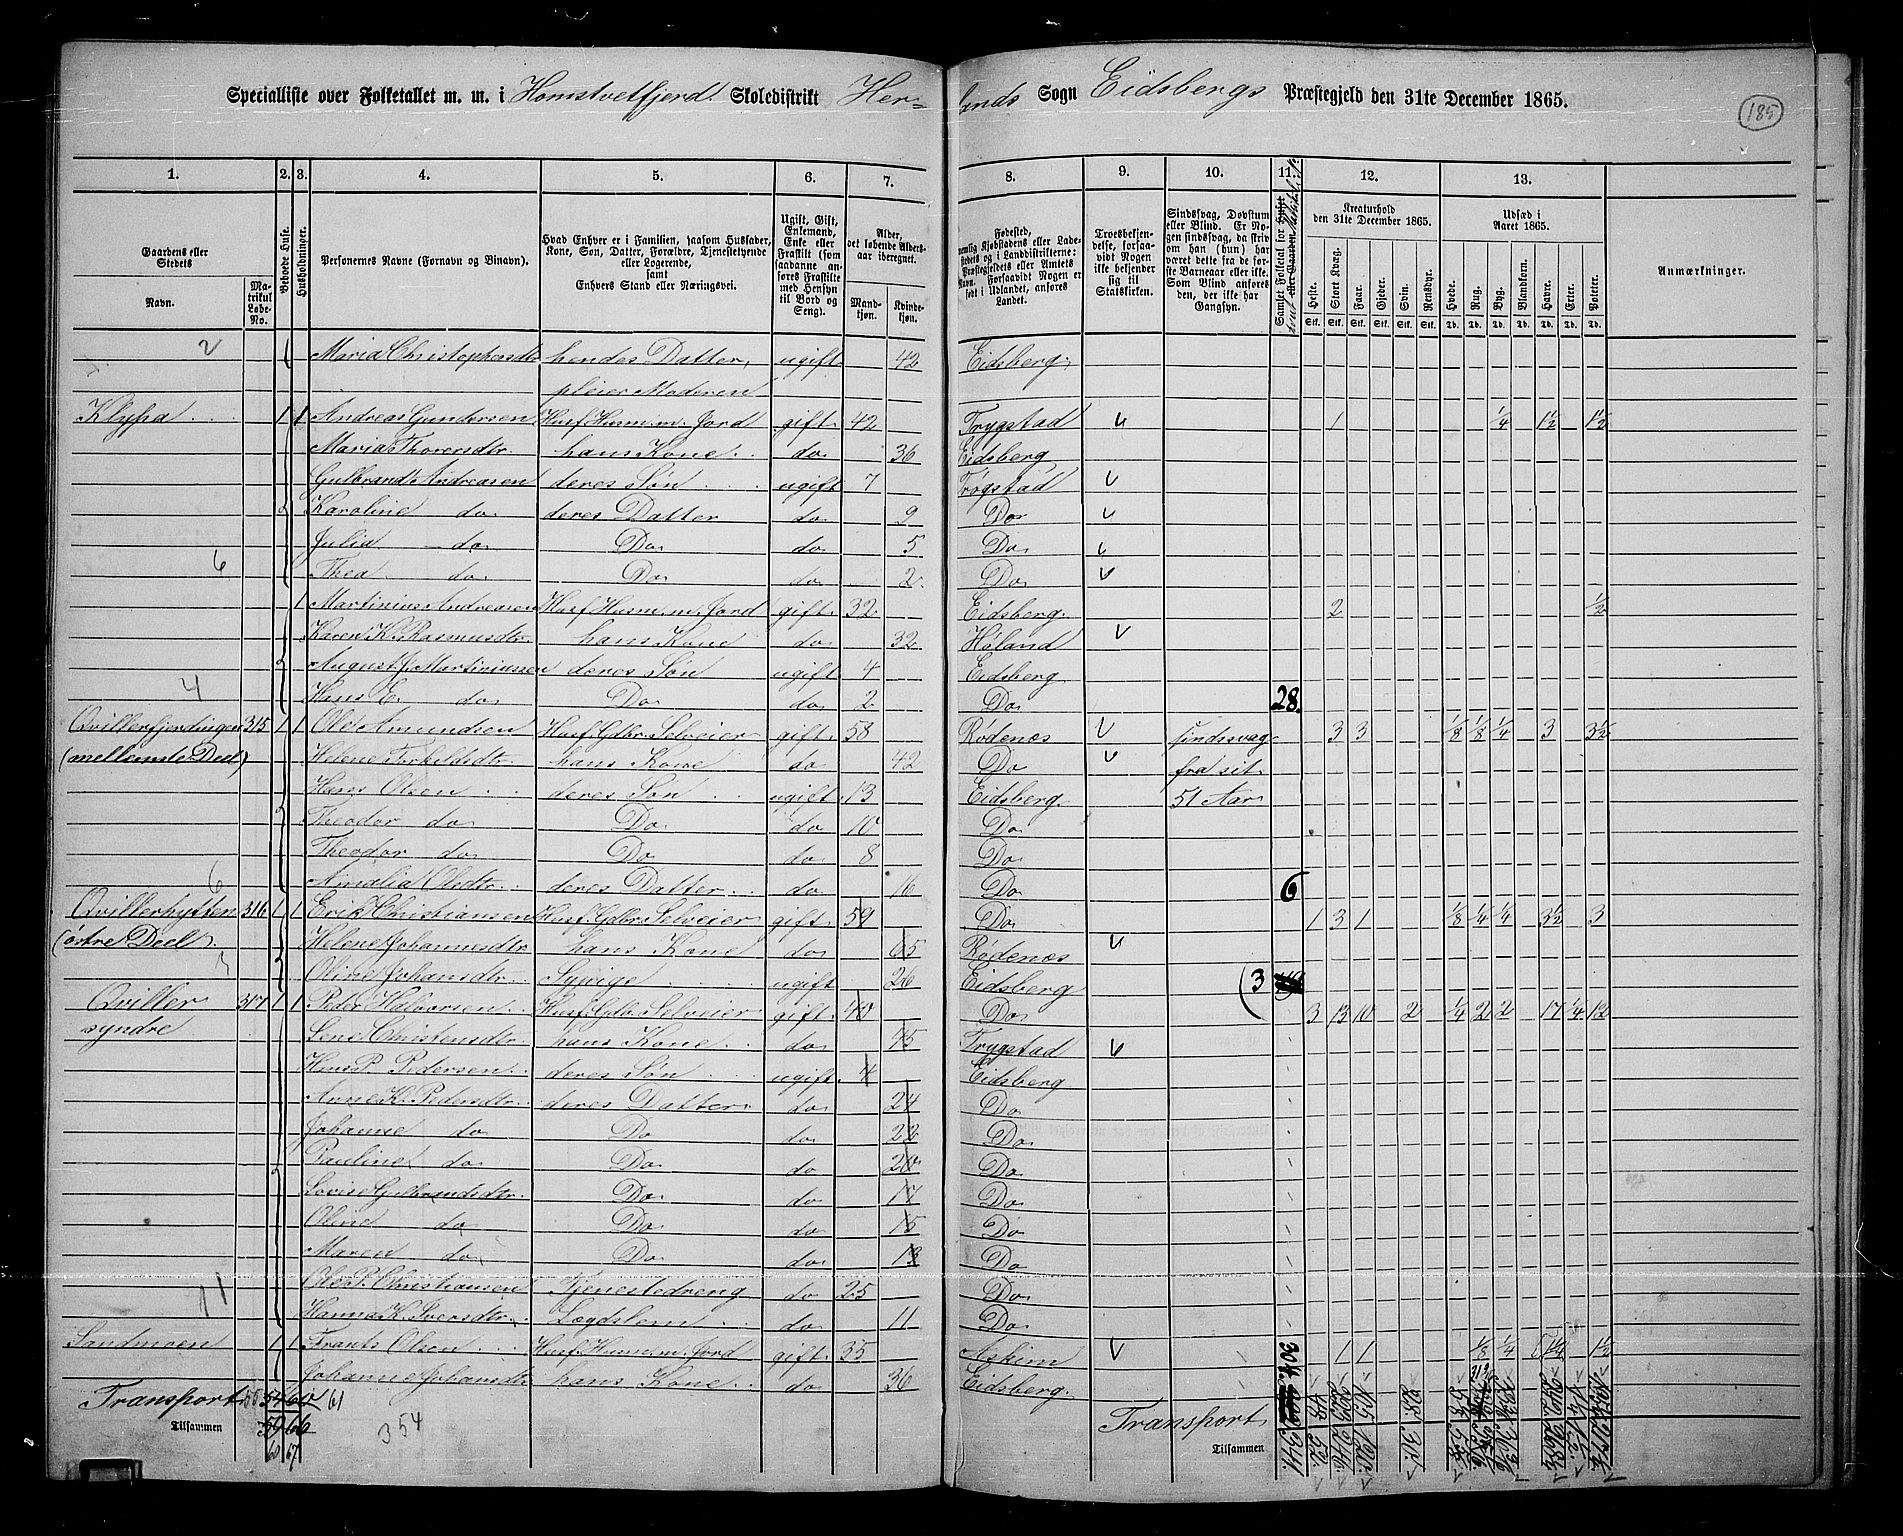 Specialliste over Folketallet m. m. i Homstvetfjerd. Skoledistrikt Her-
lands Sogn Eidsbergs Præstegjeld den 31te December 1865.
185
1. 2. 3. 4. 5. 6. 7. 8. 9. 10. 11. 12. 13.
Gaardens eller Stedets
Navn.
Matrikul Løbe-No.
Beboede Huse.
Husholdninger.
Personernes Navne (Fornavn og Binavn).
Hvad Enhver er i Familien, saasom Husfader, Kone, Søn, Datter, Forældre, Tjenestetyende eller Logerende, samt Enhvers Stand eller Næringsvei.
Ugift, Gift, Enkemand, Enke eller Fraskilt (som saadanne anføres Fraskilte med Hensyn til Bord og Seng).
Alder, det løbende Alders-aar iberegnet.
Mand-kjøn. Kvinde-kjøn.
Fødested,
Troesbekjendelse, forsaavidt Nogen ikke bekjender sig til Statskirken.
Sindssvag, Døvstum eller Blind. Er Nogen sindssvag, da skriv om han (hun) har været dette fra de første Barneaar eller ikke. Som Blind anføres den, der ikke har Gangsyn.
Kreaturhold den 31te December 1865.
Heste. Stort Kvæg. Faar. Gjeder. Svin. Rensdyr.
Udsæd i Aaret 1865.
Hvede. Rug. Byg. Blandkorn. Havre. Erter. Poteter.
Anmærkninger.
2 Maria Christophersdtr hendes Datter, ugift 42 Eidsberg.
pleier Moderen
Klyppa 1 1 Andreas Gundersen Husf. Husm. m. Jord gift 42 Trygstad 1 1/4 1½ 1½
Maria Thoresdtr. hans Kone do 36 Eidsberg
Gulbrand Andreasen deres Søn ugift 7 Trøgstad
Karoline do deres Datter do 9 Do
Julia do Do do 5 Do
6 Thea do Do do 2 Do
1 Martinius Andreasen Husf. Husm. m. Jord gift 32 Eidsberg. 2 ½
Karen K. Rasmusdtr. hans Kone do 32 Høland
August J. Martiniussen deres Søn ugift 4 Eidsberg
4 Hans E. do Do do 2 Do 28.
Qvillerfjerdingen 315 1 1 Ole Amundsen Husf. Gdbr. Selveier gift 58 Rødenæs sindssvag 3 3 1/8 1/8 1/4 3 3½
(mellemste Deel) Helene Torkildsdtr. hans Kone do 42 Do fra sit
Hans Olsen deres Søn ugift 13 Eidsberg 51 Aar
Theodor do Do do 10 Do
Theodor do Do do 8 Do
6 Amalia Olsdtr. deres Datter do 16 Do 6
Qvillerhytten 316 1 1 Erik Christiansen Husf. Gdbr. Selveier gift 59 Do 1 3 1 1/8 1/4 1/4 3½ 3
(østre Deel. Helene Johannesdtr. hans Kone do 65 Rødenæs
3 Oline Johansdtr. Sypige ugift 26 Eidsberg (3
Qviller 317 1 1 Peder Halvorsen Husf. Gdbr. Selveier gift 40 Do 3 13 10 2 1/4 2 2 17 1/4 12
syndre Lene Christensdtr. hans Kone do 45 Trygstad
Hans P. Pedersen deres Søn ugift. 4 Eidsberg
Anne K. Pedersdtr. deres Datter do 24 Do
Johanne do Do do 22 Do
Pauline do Do do 20 Do
Lovise Gulbrandsdtr. Do do 17 Do
Oline do Do do 15 Do
Maren do Do do 13 Do
11 Ole P. Christiansen Tjenestedreng do 25 Do
Hanna K. Iversdtr. Lægdslem do 11 Do
Sandmoen 1 1 Frants Olsen Husf. Husm. m. Jord gift 35 Askim 1 1 1/8 1/4 1½
Johanne Johansdtr hans Kone do 36 Eidsberg.
Transport 55 54 60 61 Transport
Tilsammen 59 66 354 Tilsammen
60 67